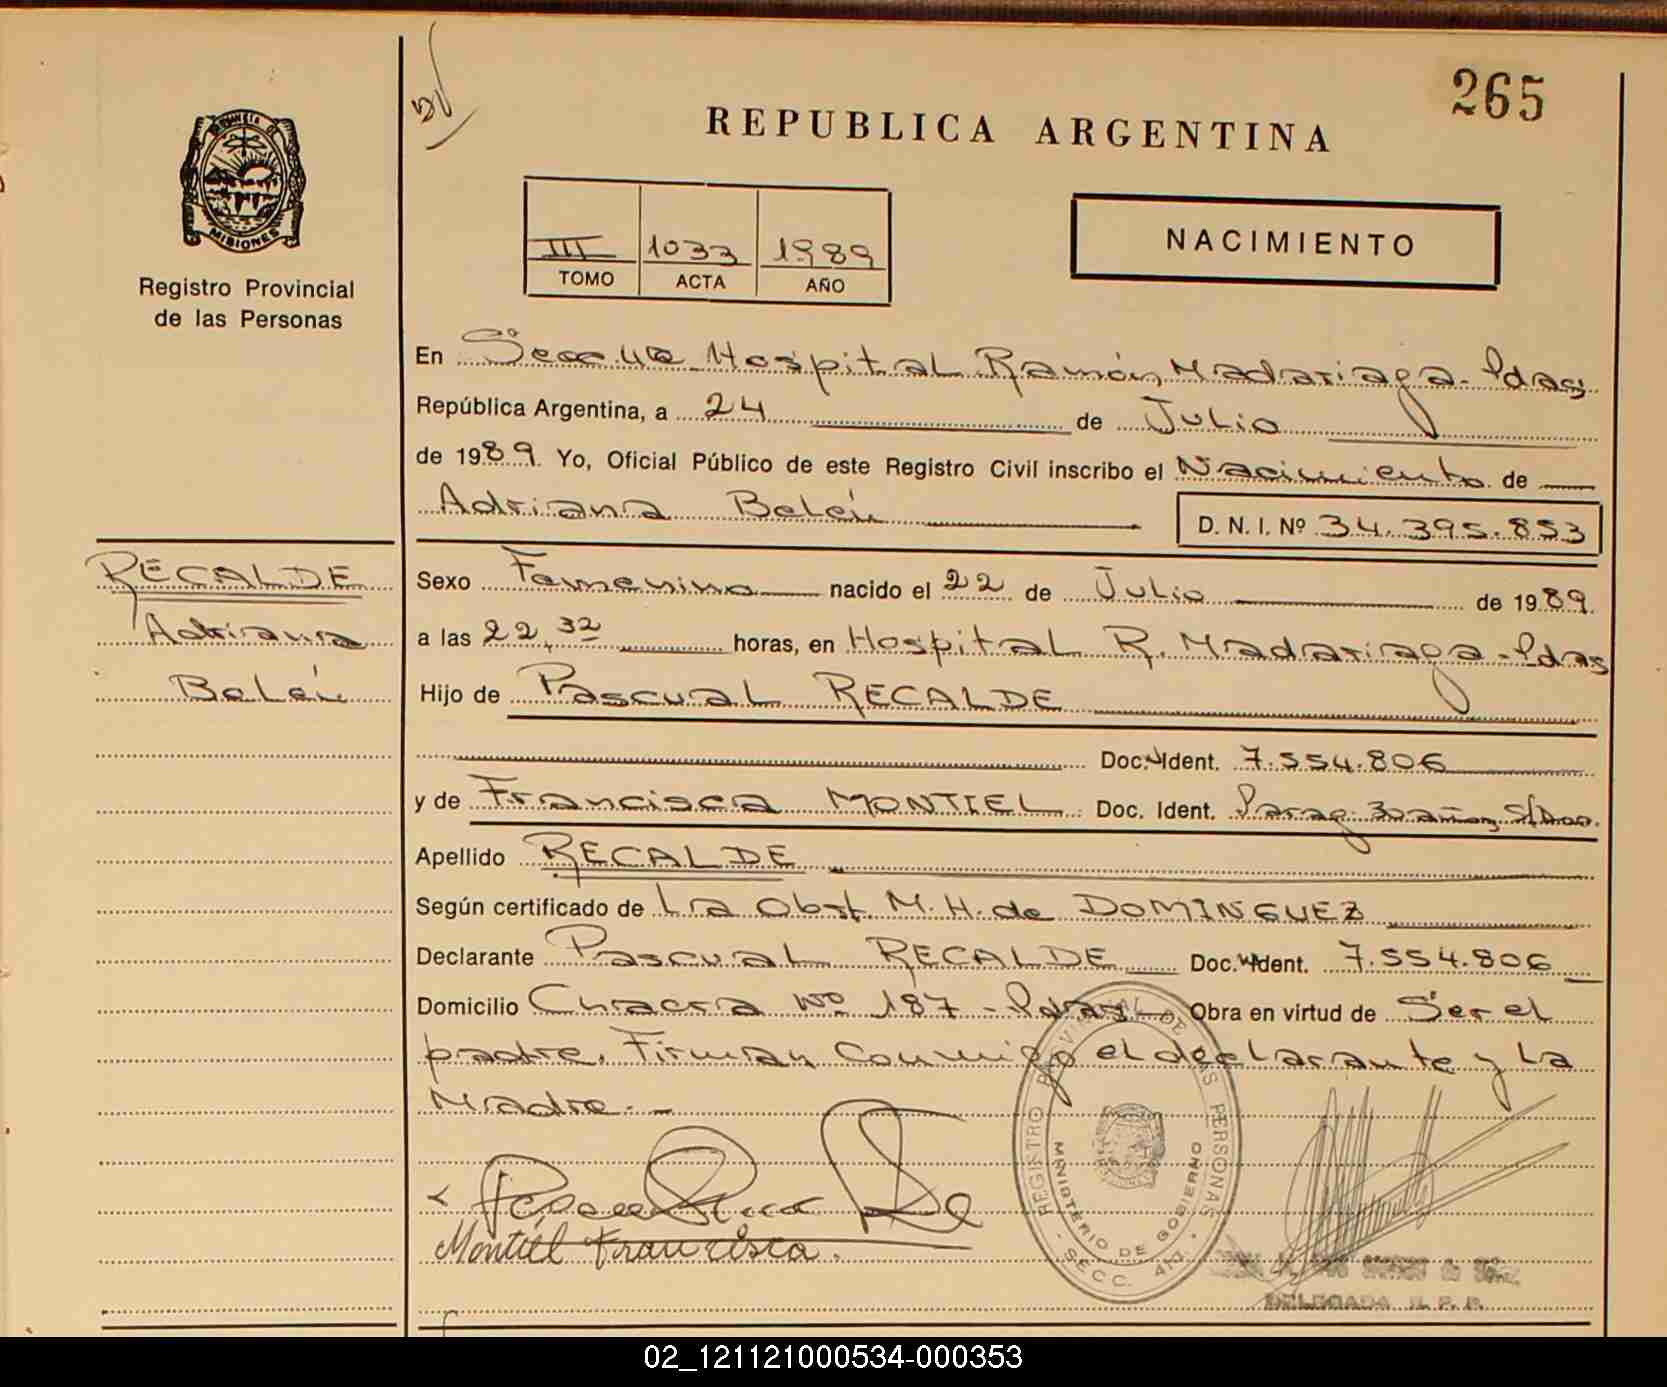 265
REPUBLICA ARGENTINA
PROVINCIA DE
MISIONES
Registro Provincial
de las Personas
III 1033 1989
TOMO ACTA AÑO
NACIMIENTO
En Secc. 4ta Hospital Ramón Madariaga - Pdas
República Argentina, a 24 de Julio
de 1989. Yo, Oficial Público de este Registro Civil inscribo el Nacimiento de
Adriana Belén D. N. I. Nº 34.395.853
RECALDE
Adriana
Belén
Sexo Femenino nacido el 22 de Julio de 1989.
a las 22,32 horas, en Hospital R. Madariaga - Pdas
Hijo de Pascual RECALDE
Doc. Ident. 7.554.806
y de Francisca MONTIEL Doc. Ident. Parag. 30 años, S/Doc.
Apellido RECALDE
Según certificado de La Obst. M. H. de DOMINGUEZ
Declarante Pascual RECALDE Doc. Ident. 7.554.806
Domicilio Chacra Nº 187 - Pdas Obra en virtud de Ser el
padre. Firman conmigo el declarante y La
Madre. -
REGISTRO PROVINCIAL DE LAS PERSONAS
MINISTERIO DE GOBIERNO
SECC. 4ta.
Montiel Francisca.
DELEGADA R. P. P.
02_121121000534-000353